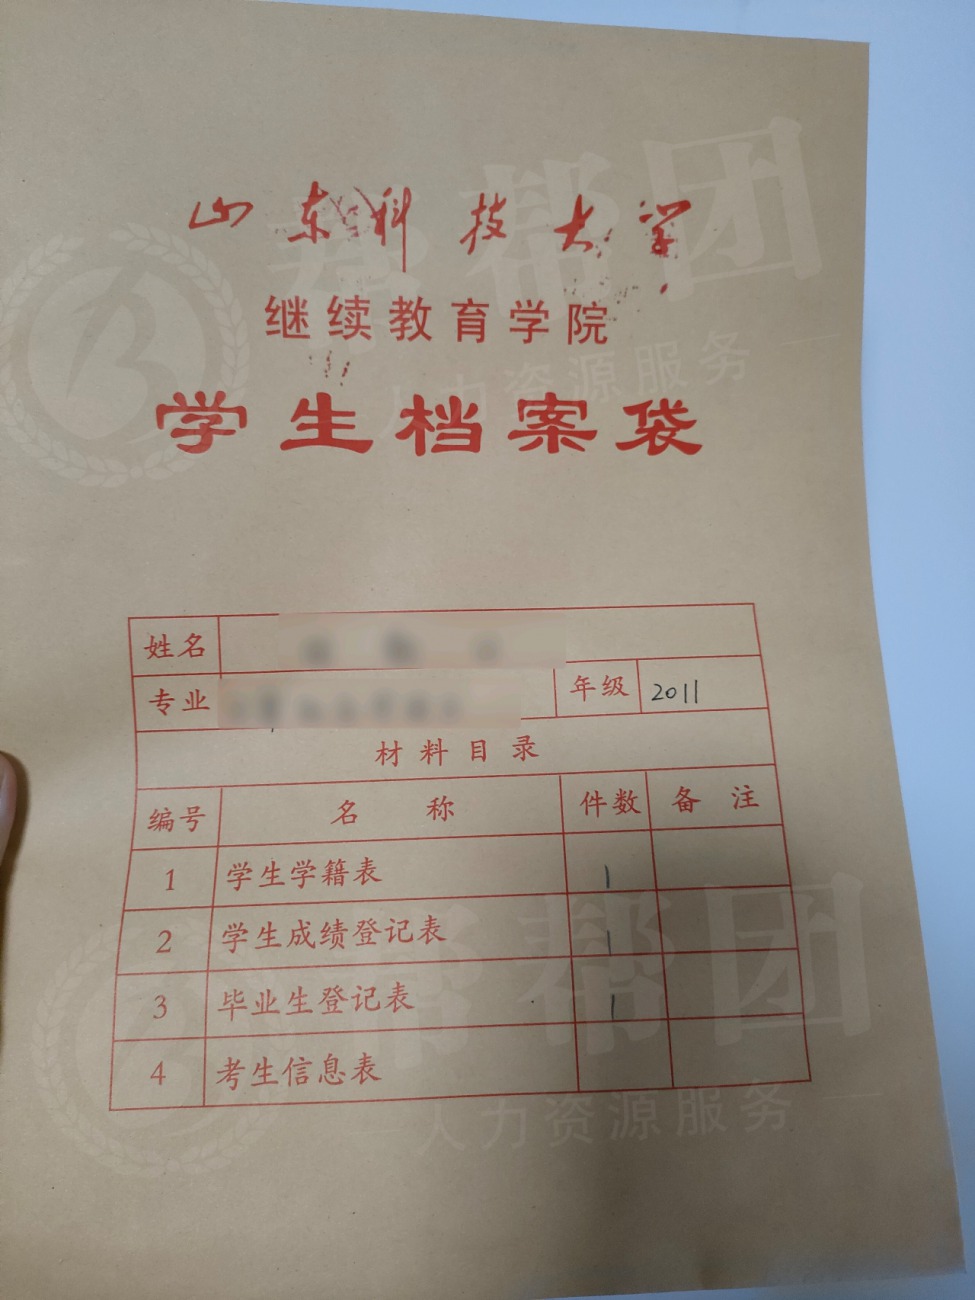 山东科技大学
继续教育学院
学生档案袋
姓名
专业 年级 2011
材料目录
编号 名称 件数 备注
1 学生学籍表 1
2 学生成绩登记表 1
3 毕业生登记表 1
4 考生信息表
帮帮团
人力资源服务
帮帮团
人力资源服务